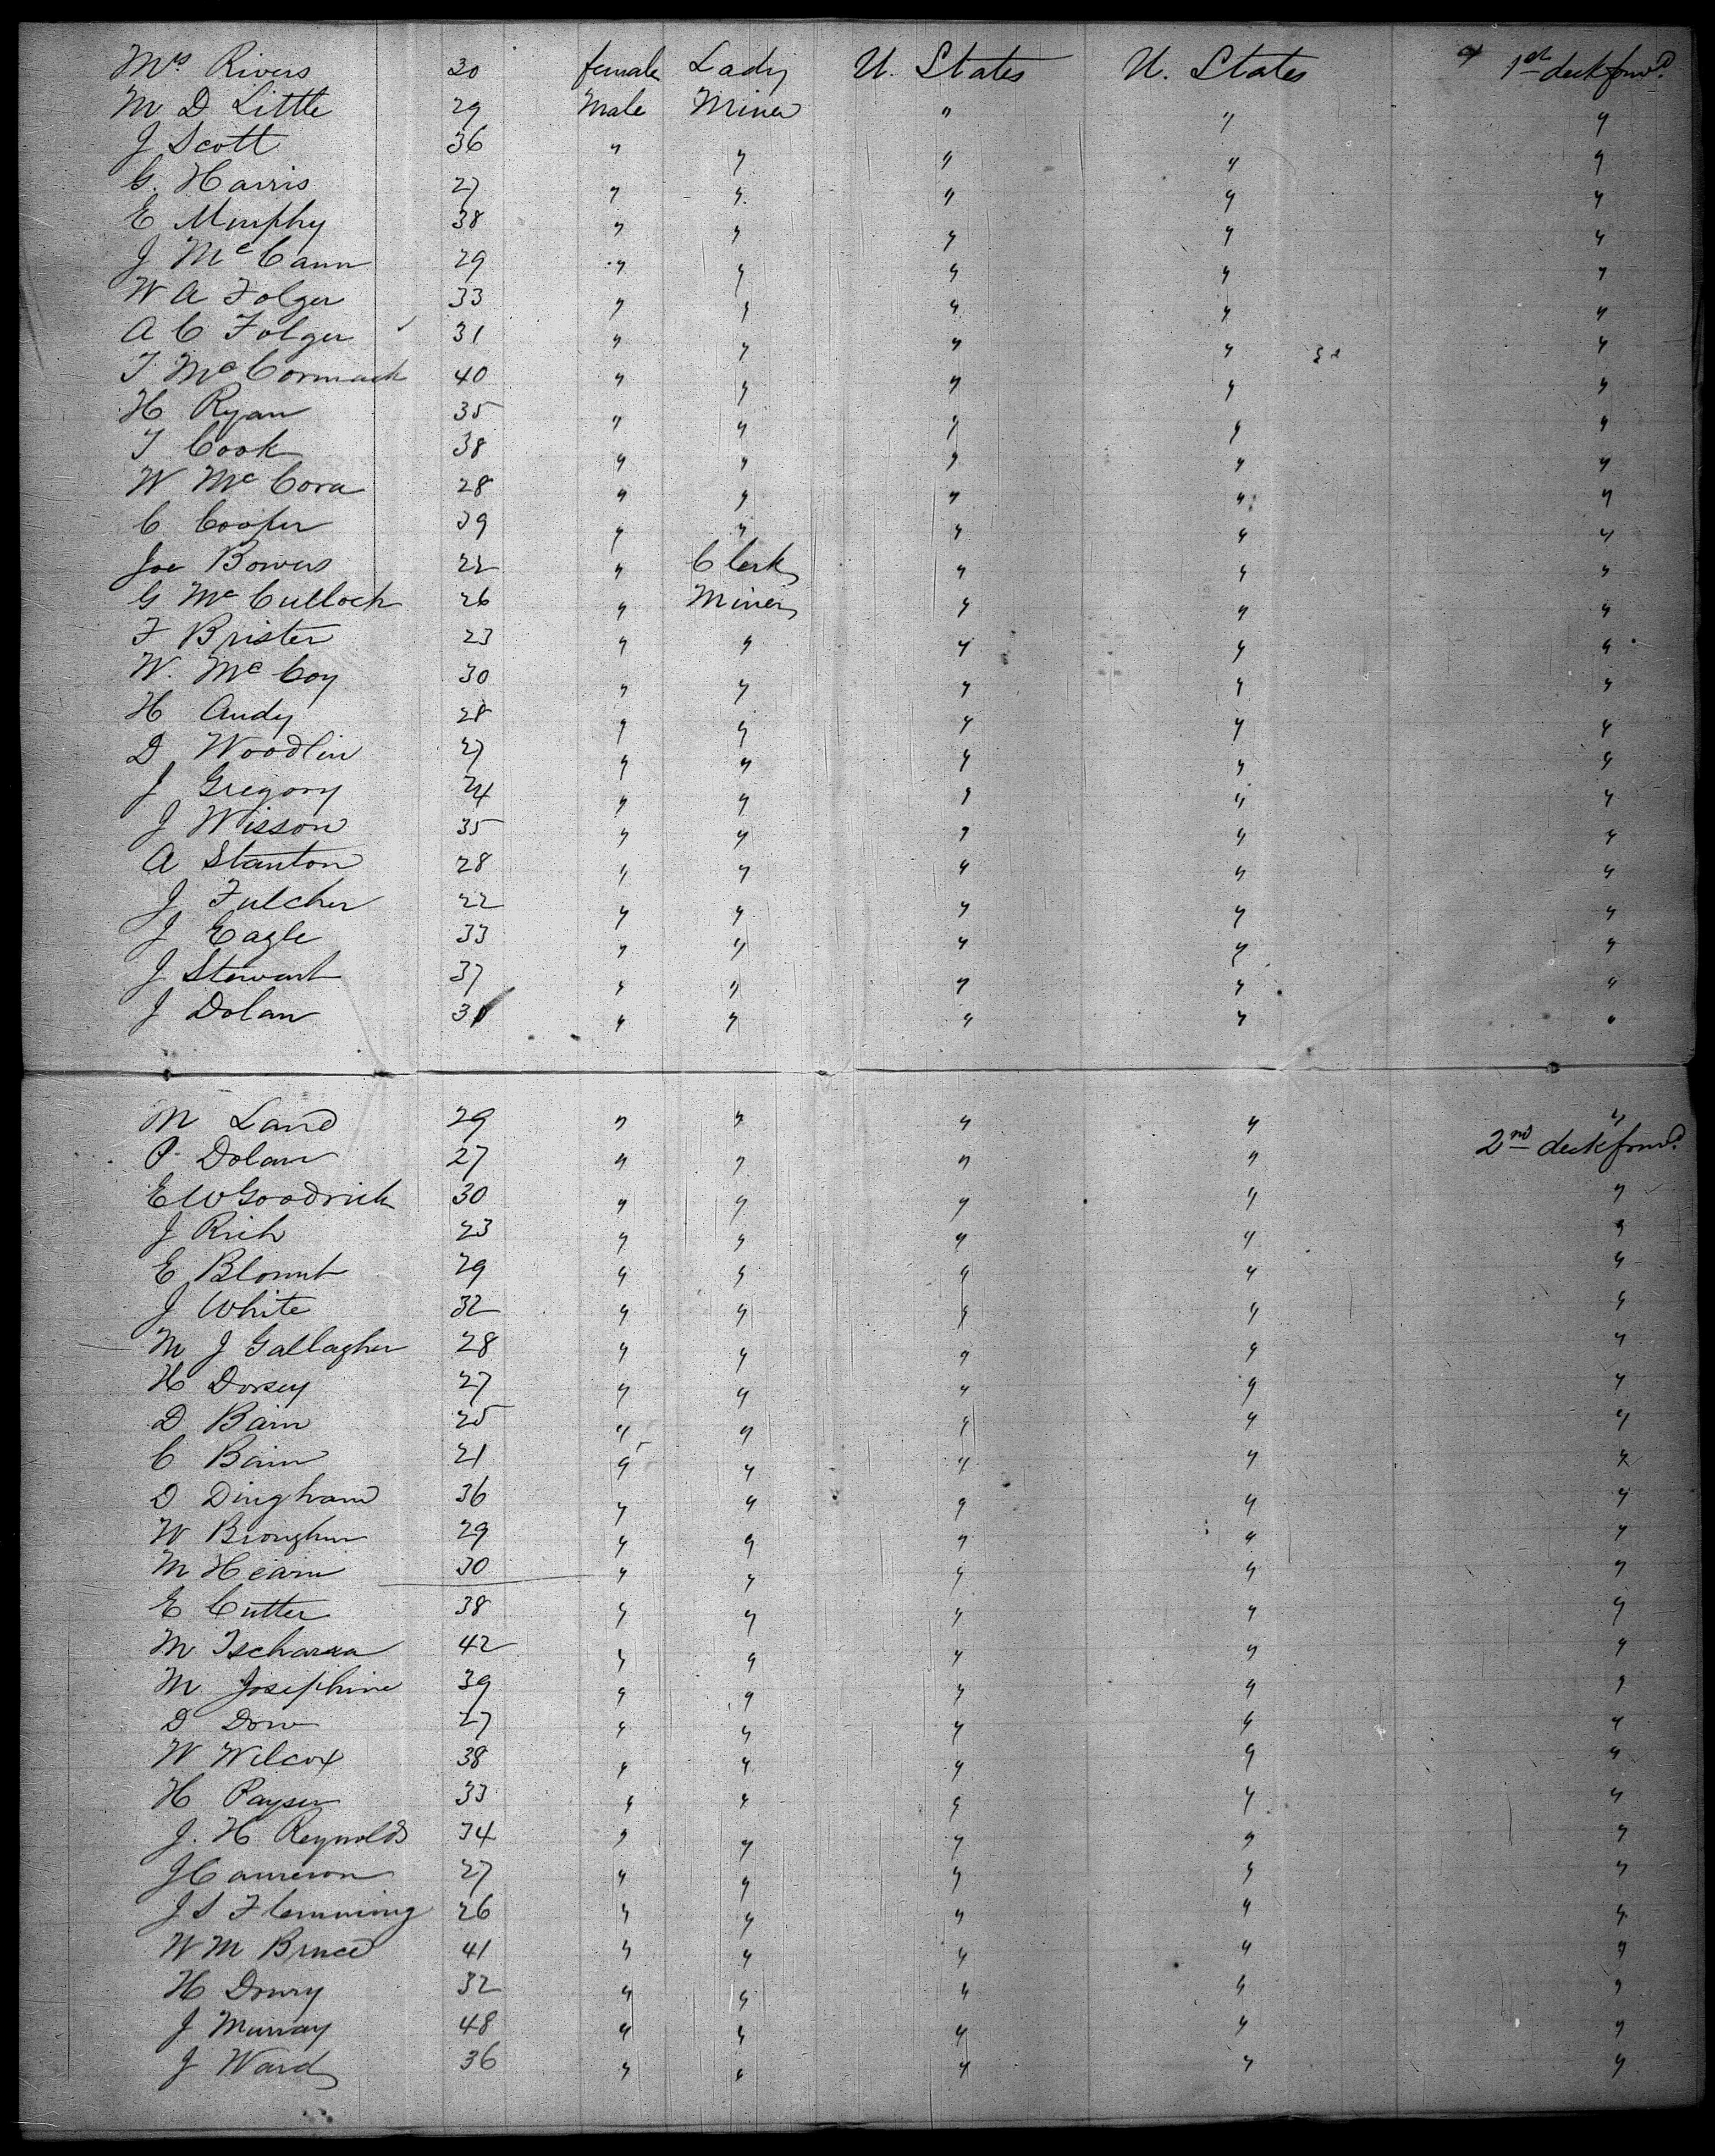 Mrs Rivers 30 female Lady U. States U. States " 1st deck forwd.
M D Little 29 Male Miner " " "
J Scott 36 " " " " "
G. Harris 27 " " " " "
E Murphy 38 " " " " "
J McCann 29 " " " " "
W A Folger 33 " " " " "
A C Folger 31 " " " " "
T McCormack 40 " " " " "
H Ryan 35 " " " " "
T Cook 38 " " " " "
W McCora 28 " " " " "
C Cooper 39 " " " " "
Joe Bowers 22 " Clerk " " "
G McCulloch 26 " Miner " " "
F Brister 23 " " " " "
W. McCoy 30 " " " " "
H Andy 28 " " " " "
D Woodlin 27 " " " " "
J Gregory 24 " " " " "
J Wisson 35 " " " " "
A Stanton 28 " " " " "
J Fulcher 22 " " " " "
J Eagle 33 " " " " "
J Stewart 37 " " " " "
J Dolan 31 " " " " "
M Land 29 " " " " "
P Dolan 27 " " " " 2nd deck forwd.
E W Goodrich 30 " " " " "
J Rich 23 " " " " "
E Blount 29 " " " " "
J White 32 " " " " "
M J Gallagher 28 " " " " "
H Dorsey 27 " " " " "
D Bain 25 " " " " "
C Bain 21 " " " " "
D Dingham 36 " " " " "
W Brougher 29 " " " " "
M Hearn 30 " " " " "
E Cutter 38 " " " " "
M 42 " " " " "
M Josephine 39 " " " " "
D Dow 27 " " " " "
W Wilcox 38 " " " " "
H Payser 33 " " " " "
J. H Reynolds 34 " " " " "
J Cameron 27 " " " " "
J S Flemming 26 " " " " "
W M Bruce 41 " " " " "
H Drury 32 " " " " "
J Murray 48 " " " " "
J Ward 36 " " " " "